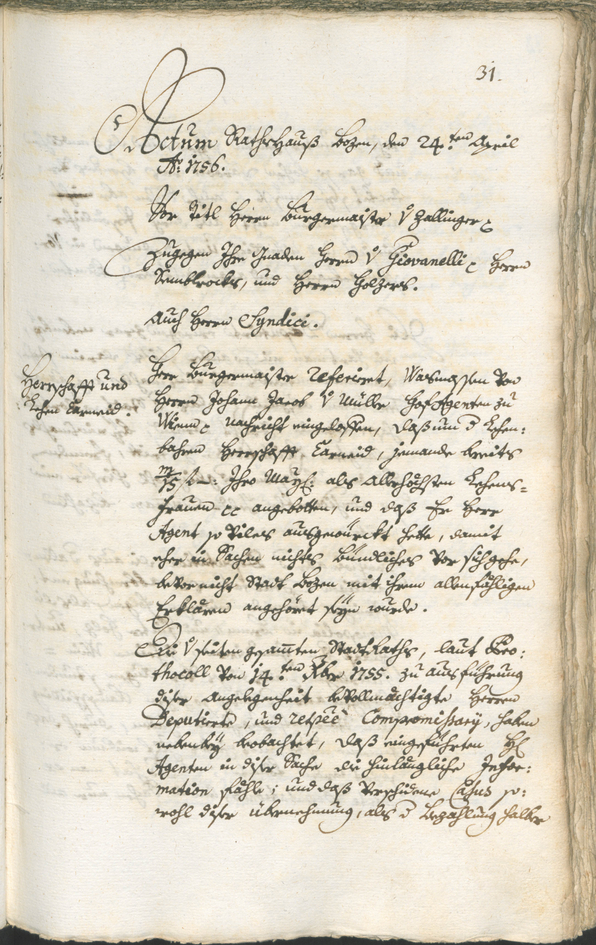 31.
Actum Rathshauß Bozen, den 24.ten April
Ao: 1756.
Vor Titl Herrn Burgermaister v Zallinger
Zugegen Ihro Gnaden Herrn v Giovanelli Herrn
Sembtrockh, und Herrn Holzers.
Auch Herrn Syndici.
Herrschafft und
Lehen Carneid.
Herr Burgermaister referieret, Wasmassen von
Herrn Johann Jacob v Müller Hof Agenten zu
Wienn Nachricht eingeloffen, daß umb d Lehen:
bahren Herrschafft Carneid, jemands bereits
m/75 f: Ihro Mays: als Allerhöchsten Lehens-
Frauen angebotten, und daß Er Herr
Agent so vileß ausgewürckt hette, damit
eher in Sachen nichts bündliches vor sich gehe,
bevor nicht Statt Bozen mit ihrem allenfähligen
Erklären angehöret seyn wurde.
Die v seiten gesammten Stadt Raths, laut Pro:
thocoll von 14.ten Xber 1755. zu ausführung
diser angelegenheit bevollmächtigte Herren
Deputierte, und respee Compromissary, haben
nebenbey beobachtet, daß eingeführten H:
Agenten in diser Sache die hinlängliche Infor:
mation fähle; und daß verschidene Casus so:
wohl diser übernehmung, als d bezahlung halber